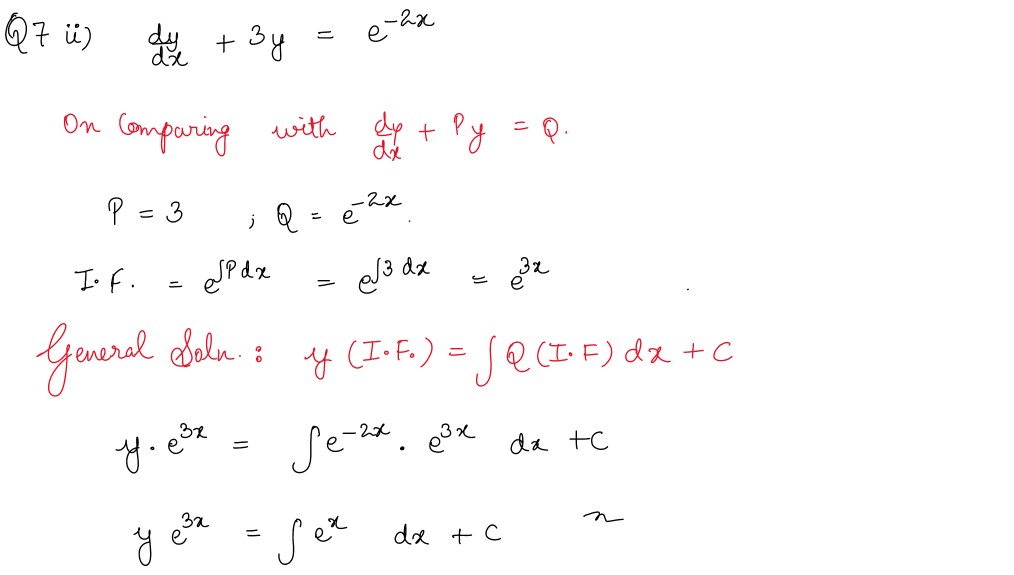 Q7 ii) dy/dx + 3y = e^{-2x}
On Comparing with dy/dx + Py = Q.
P = 3 ; Q = e^{-2x}.
I.F. = e^{∫P dx} = e^{∫3 dx} = e^{3x}
General Soln. : y (I.F.) = ∫Q (I.F) dx + C
y . e^{3x} = ∫e^{-2x} . e^{3x} dx + C
y e^{3x} = ∫e^{x} dx + C